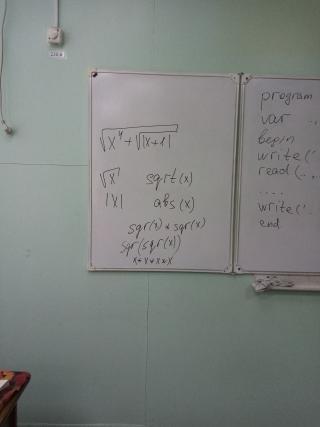 √x⁴+√|x+1|
√x sqrt(x)
|x| abs(x)
sqr(x)*sqr(x)
sqr(sqr(x))
x*x*x*x
program
var
begin
write('
read(..,
....
write('.
end